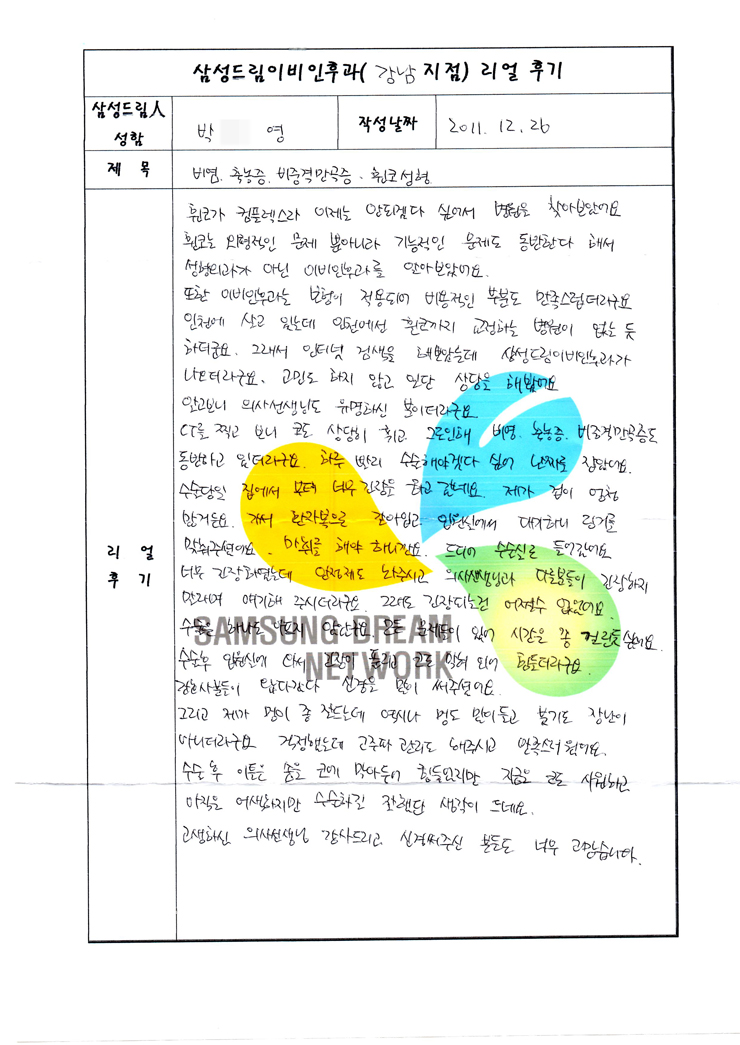 삼성드림이비인후과( 강남 지점) 리얼 후기
삼성드림人
성함
박 영
작성날짜
2011. 12. 26
제 목
비염. 축농증. 비중격만곡증. 휜코성형
휜코가 컴플렉스라 이제는 안되겠다 싶어서 병원을 찾아보았어요
휜코는 외형적인 문제 뿐아니라 기능적인 문제도 동반한다 해서
성형외과가 아닌 이비인후과를 알아보았어요.
또한 이비인후과는 보험이 적용되어 비용적인 부분도 만족스럽더라구요
인천에 살고 있는데 인천에선 휜코까지 교정하는 병원이 없는 듯
하더군요. 그래서 인터넷 검색을 해보았는데 삼성드림이비인후과가
나오더라구요. 고민도 하지 않고 일단 상담을 해봤어요
알고보니 의사선생님도 유명하신 분이더라구요.
CT를 찍고 보니 코도 상당히 휘고 그로인해 비염. 축농증. 비중격만곡증도
동반하고 있더라구요. 하루 빨리 수술해야겠다 싶어 날짜를 잡았어요.
수술당일 집에서 부터 너무 긴장을 하고 갔네요. 제가 겁이 엄청
많거든요. 가서 환자복으로 갈아입고 입원실에서 대기하니 링거를
맞춰주셨어요. 마취를 해야 하니깐요. 드디어 수술실로 들어갔어요
너무 긴장하였는데 안정제도 놔주시고 의사선생님과 다른분들이 긴장하지
말라며 얘기해 주시더라구요. 그래도 긴장되는건 어쩔수 없었어요.
수술을 해서도 아프지 않았구요. 모든 문제들이 있어 시간은 좀 걸린듯 싶어요.
수술후 입원실에 다서 긴장이 풀리고 코도 막혀 있어 힘들더라구요.
간호사분들이 왔다갔다 신경을 많이 써주셨어요.
그리고 제가 멍이 좀 잘드는데 역시나 멍도 많이들고 붓기도 장난이
아니더라구요 걱정했는데 고주파 관리도 해주시고 만족스러웠어요.
수술 후 이틀은 솜을 코에 막아두어 힘들었지만 지금은 코도 시원하고
아직은 어색하지만 수술하길 잘했단 생각이 드네요.
고생하신 의사선생님 감사드리고, 신경써주신 분들도 너무 고맙습니다.
리 얼
후 기
SAMSUNG DREAM
NETWORK